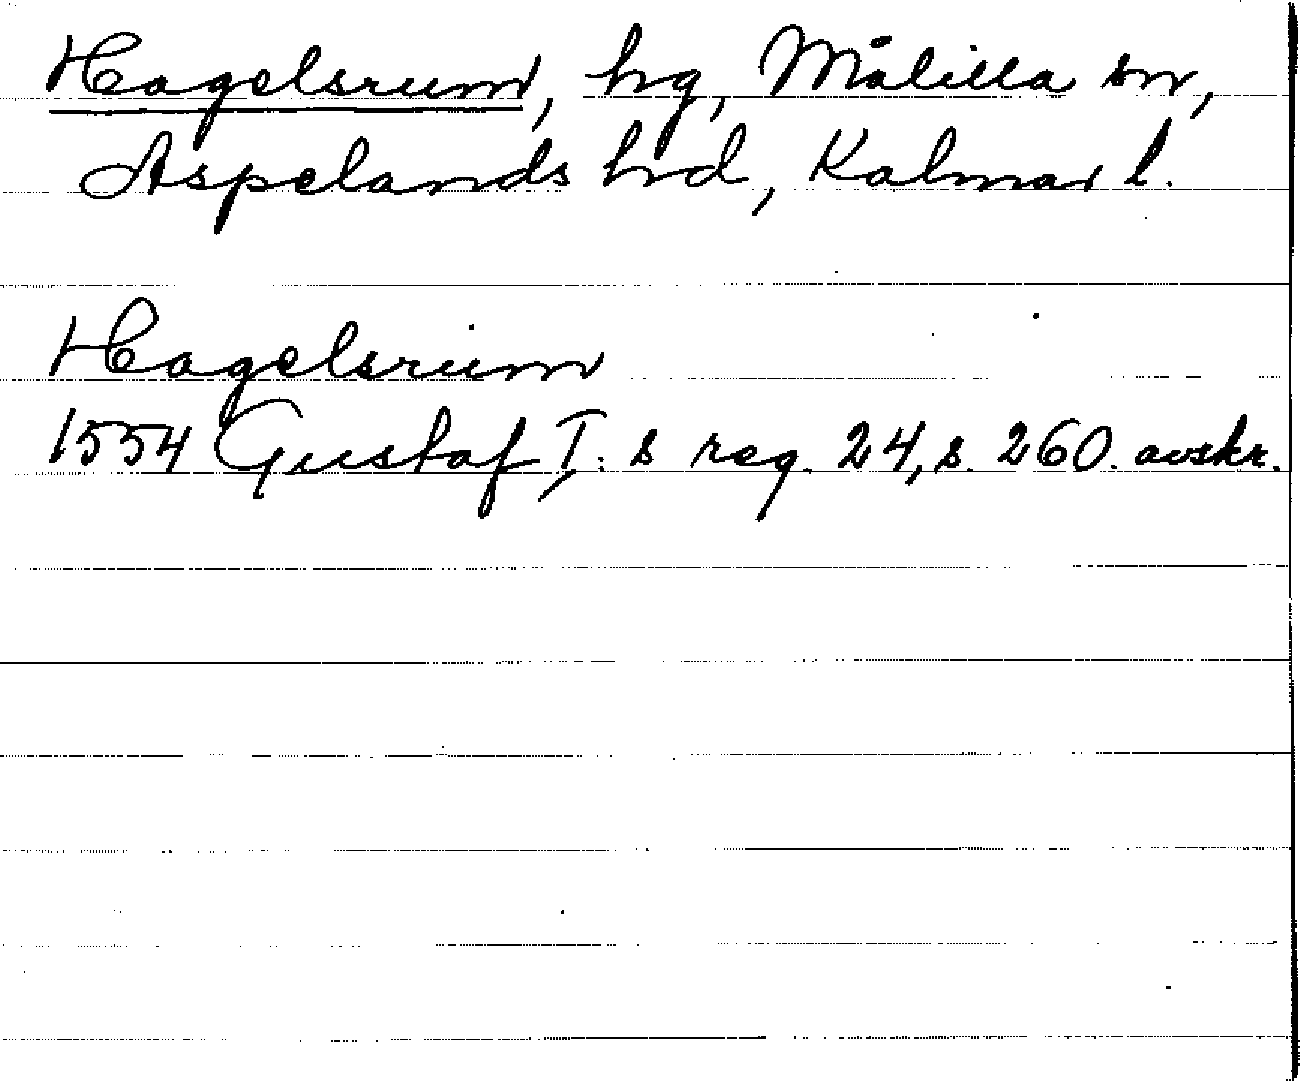 Hagelsrum, hg, Målilla sn,
Aspelands hrd, Kalmar l.
Hagelsrum
1554 Gustaf I: s reg. 24, s. 260. avskr.